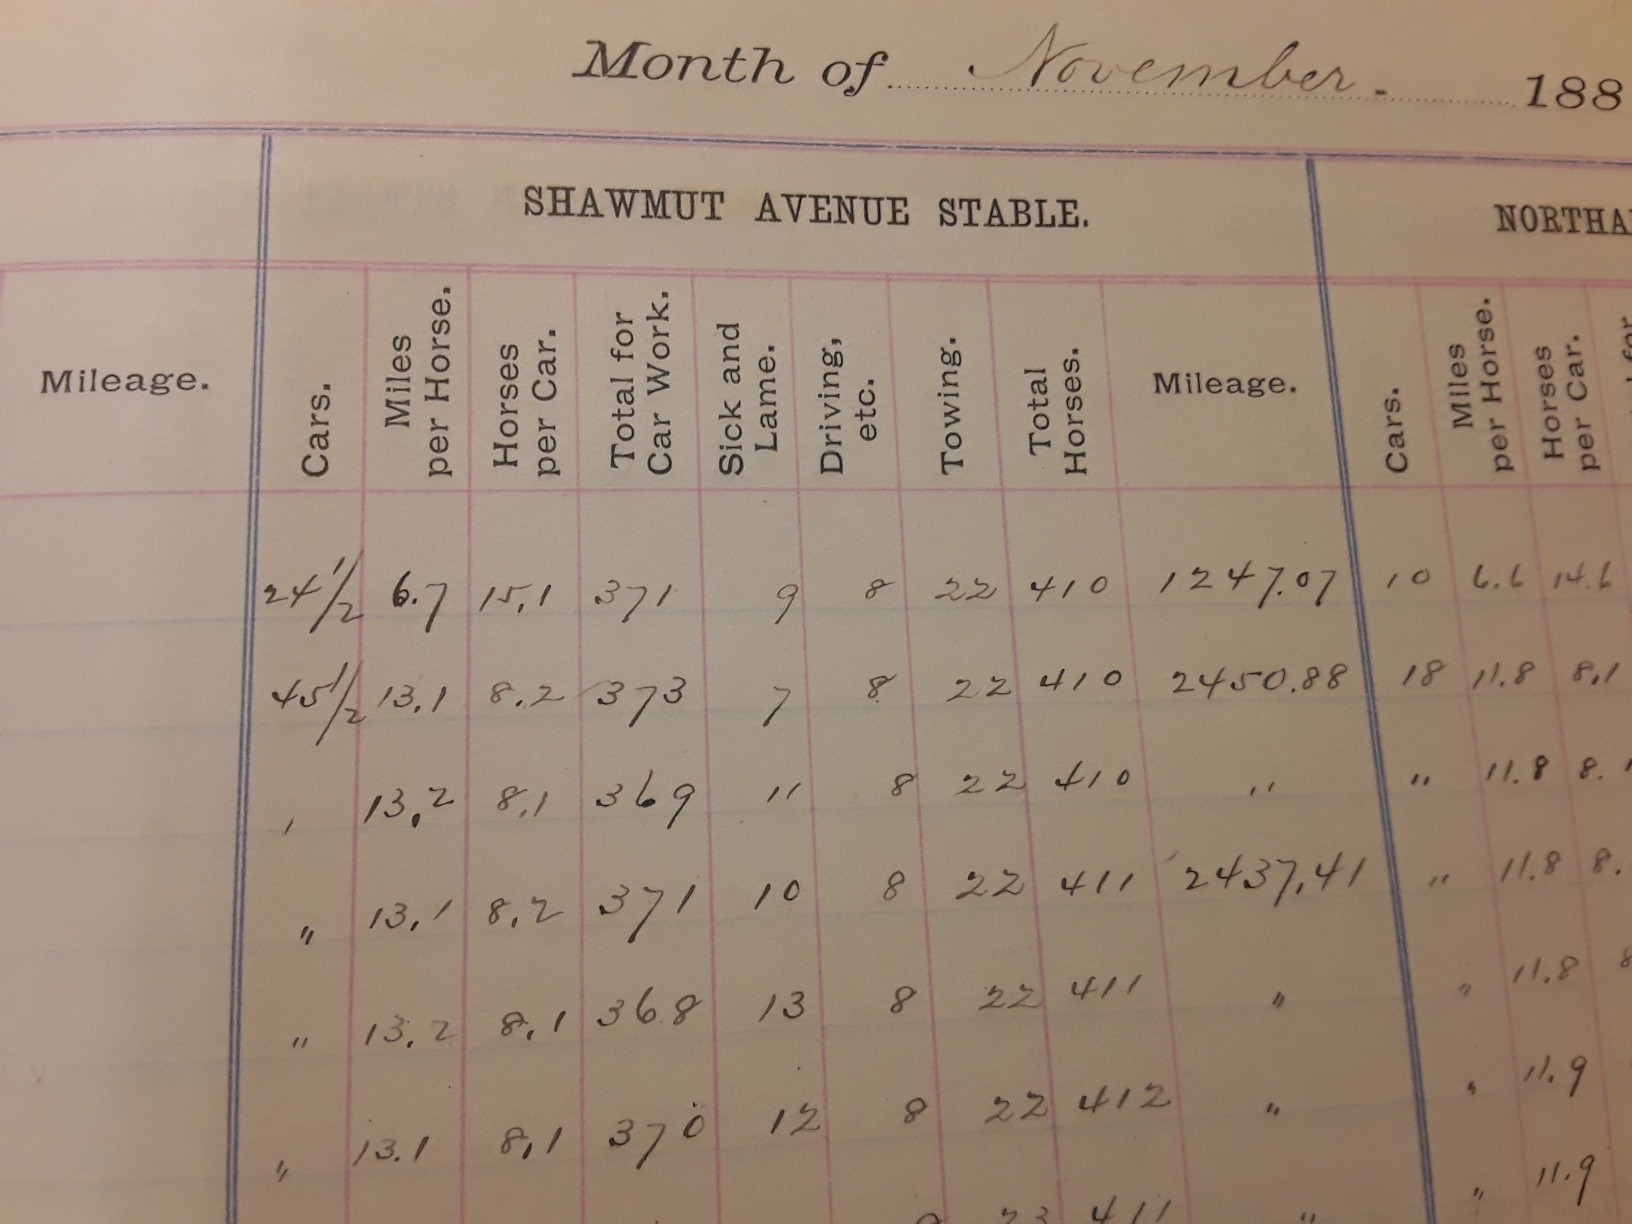 Month of November. 188
SHAWMUT AVENUE STABLE. NORTHA
Mileage. Cars. Miles per Horse. Horses per Car. Total for Car Work. Sick and Lame. Driving, etc. Towing. Total Horses. Mileage. Cars. Miles per Horse. Horses per Car. for
24 1/2 6.7 15.1 371 9 8 22 410 1247.07 10 6.6 14.6
45 1/2 13.1 8.2 373 7 8 22 410 2450.88 18 11.8 8.1
" 13.2 8.1 369 11 8 22 410 " " 11.8 8.
" 13.1 8.2 371 10 8 22 411 2437.41 " 11.8 8.
" 13.2 8.1 368 13 8 22 411 " " 11.8 8
" 13.1 8.1 370 12 8 22 412 " " 11.9
23 411 " " 11.9